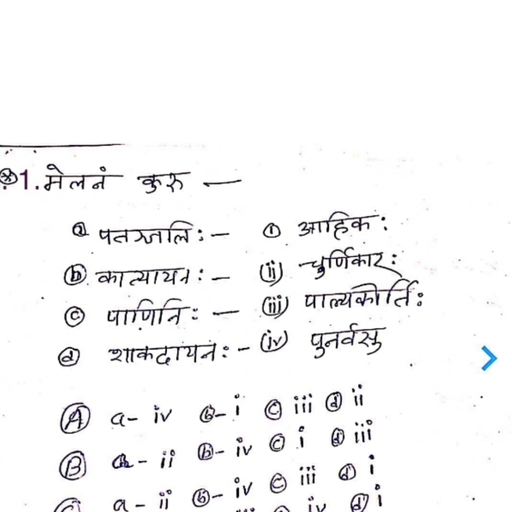 1. मेलनं कुरु —
ⓐ पतञ्जलिः - ⓘ आहिकः
ⓑ कात्यायनः - (ii) चुर्णिकारः
ⓒ पाणिनिः - (iii) पाल्यकीर्तिः
ⓓ शाकटायनः - (iv) पुनर्वसु
Ⓐ a- iv ⓑ- i ⓒ iii ⓓ ii
Ⓑ a- ii ⓑ- iv ⓒ i ⓓ iii
a- ii ⓑ- iv ⓒ iii ⓓ i
iv ⓓ i